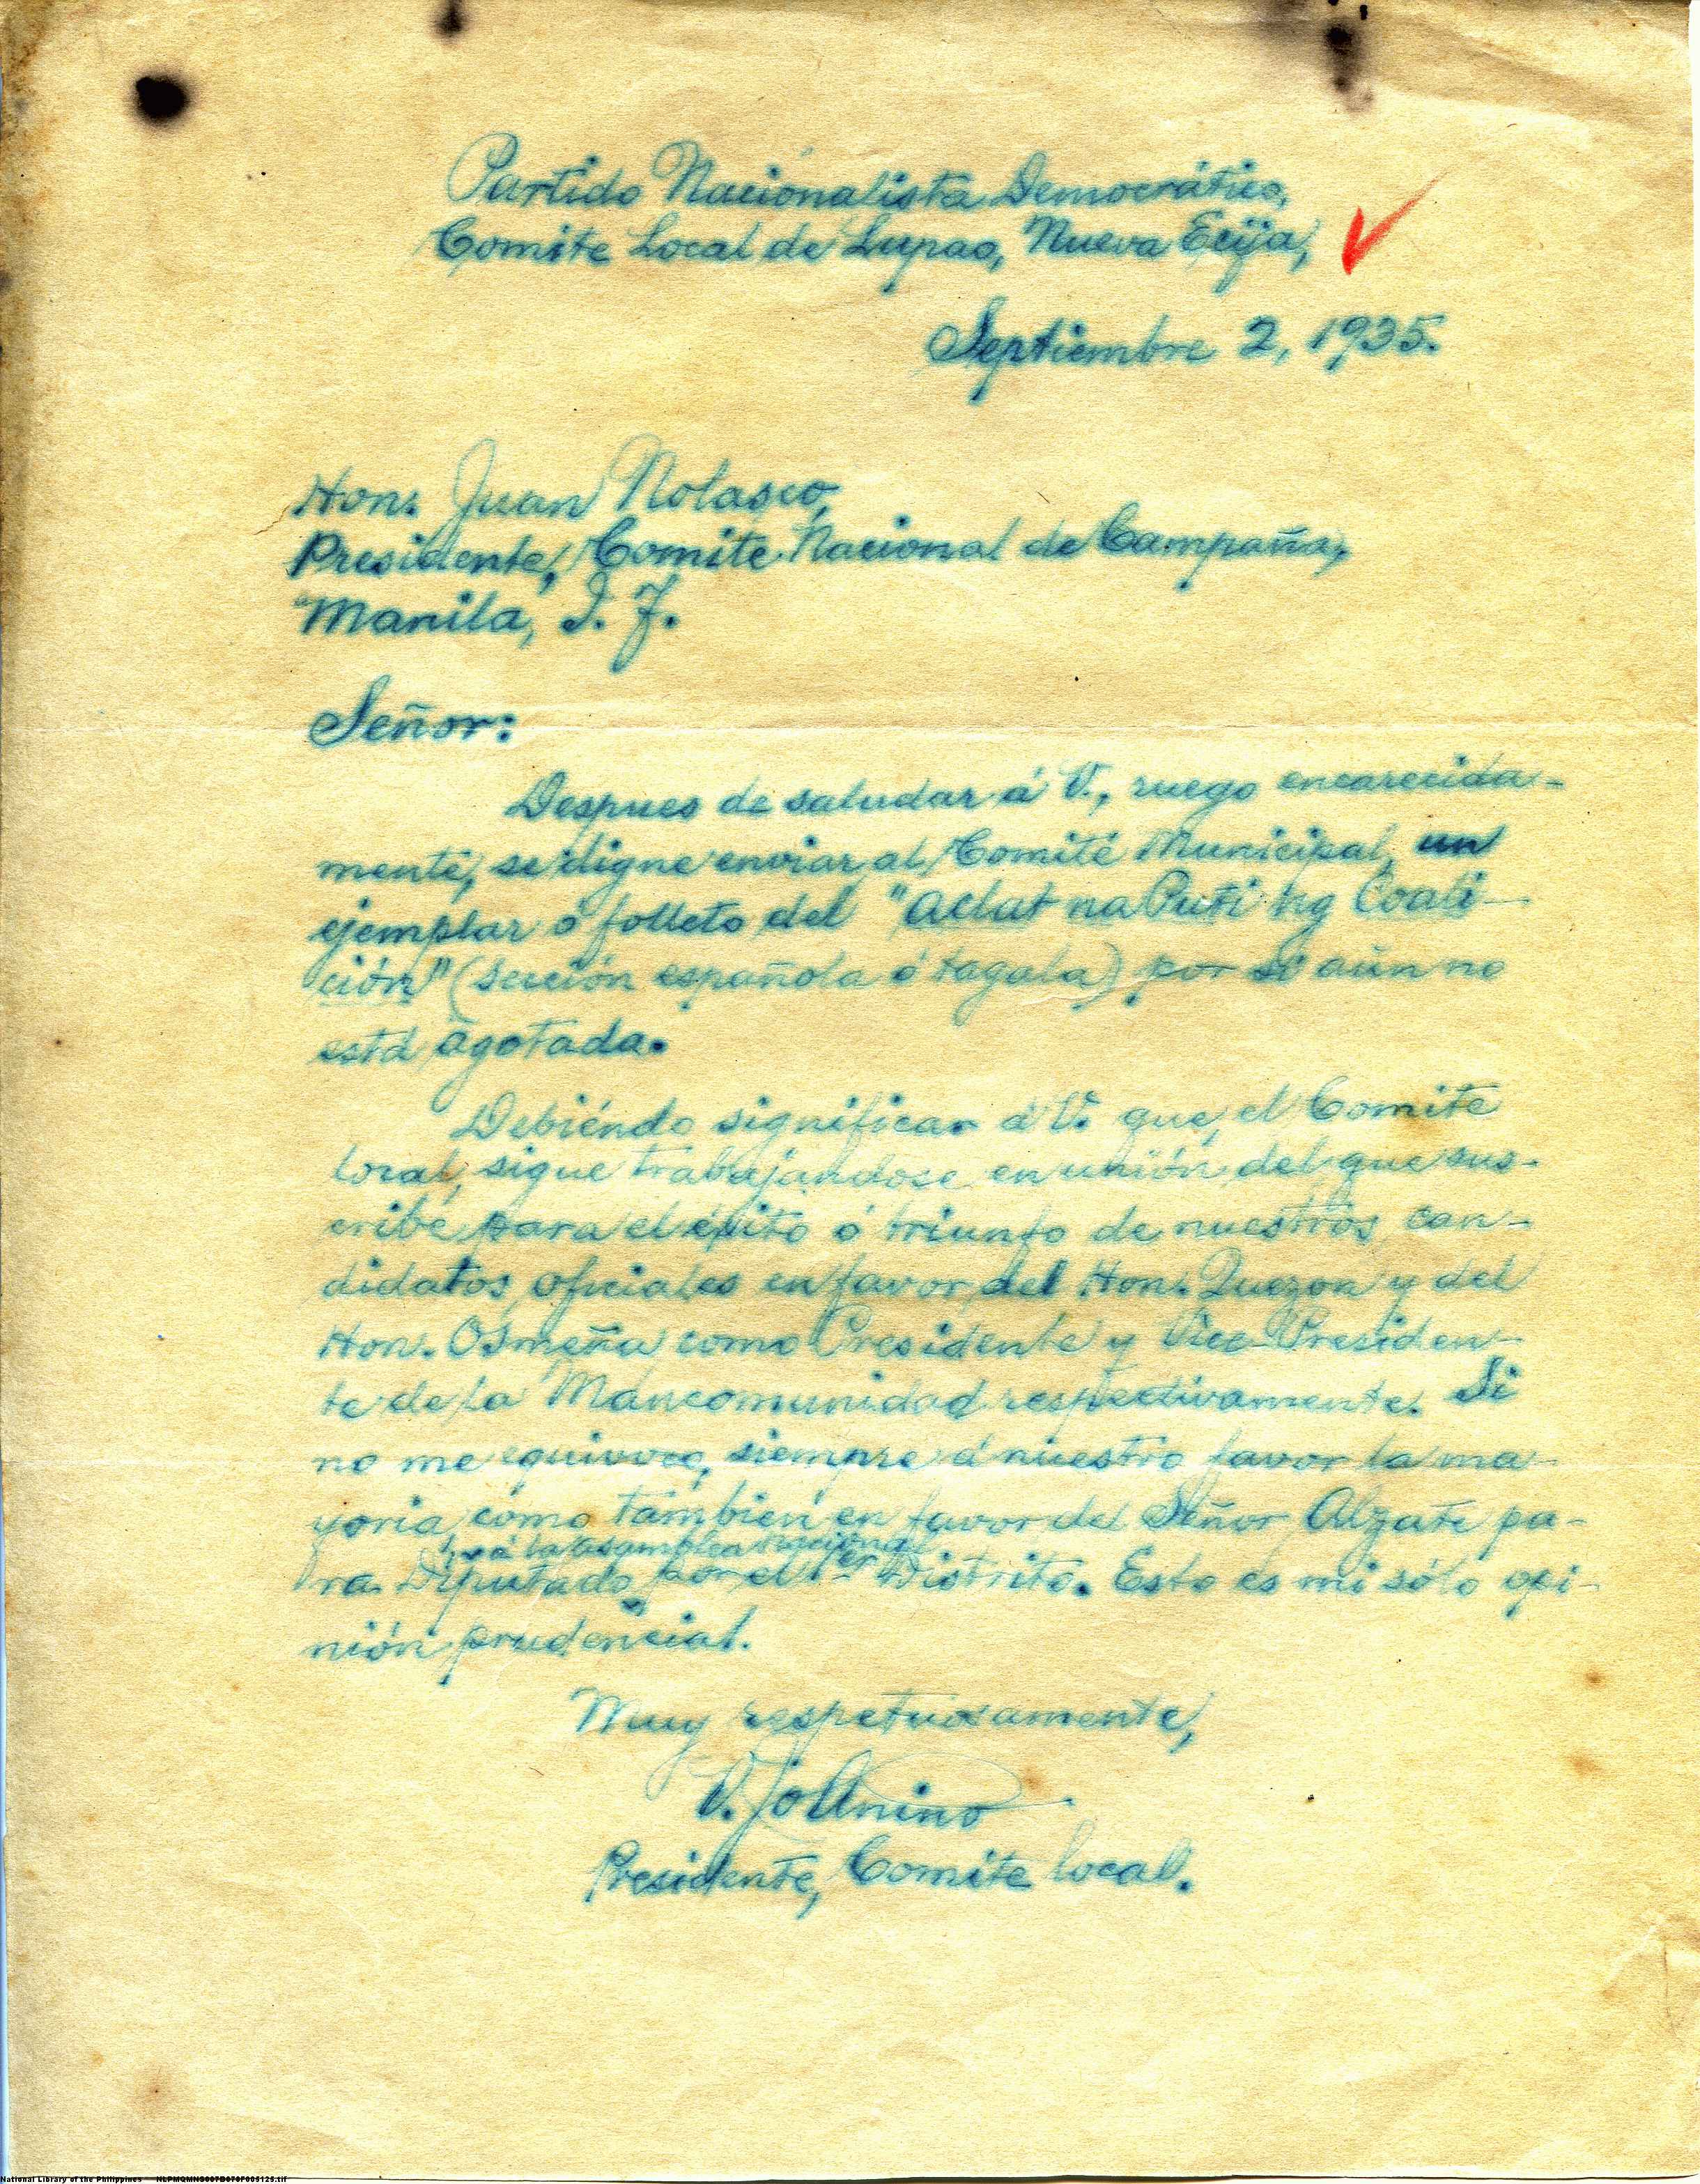 Partido Nacionalista Democrático,
Comite Local de Lupao, Nueva Ecija,
Septiembre 2, 1935.
Hon. Juan Nolasco,
Presidente, Comite Nacional de Campaña,
Manila, I. F.
Señor:
Despues de saludar á V., ruego encarecida-
mente, se digne enviar al Comité Municipal, un
ejemplar ó folleto del "Aclat na Puti ng Coali-
ción" (sección española ó tagala) por si aún no
está agotada.
Debiéndo significar á V. que, el Comite
local, sigue trabajandose en unión del que sus-
cribe para el éxito ó triunfo de nuestros can-
didatos oficiales en favor del Hon. Quezon y del
Hon. Osmeña como Presidente y Vice-Presiden-
te de la Mancomunidad respectivamente. Si
no me equivoco, siempre á nuestro favor la ma-
yoria, como tambien en favor del Señor Alzate pa-
á la asamblea nacional
ra Diputado por el 1er Distrito. Esto es mi sólo opi-
nión prudencial.
Muy respetuosamente,
Presidente, Comite local.
National Library of the Philippines